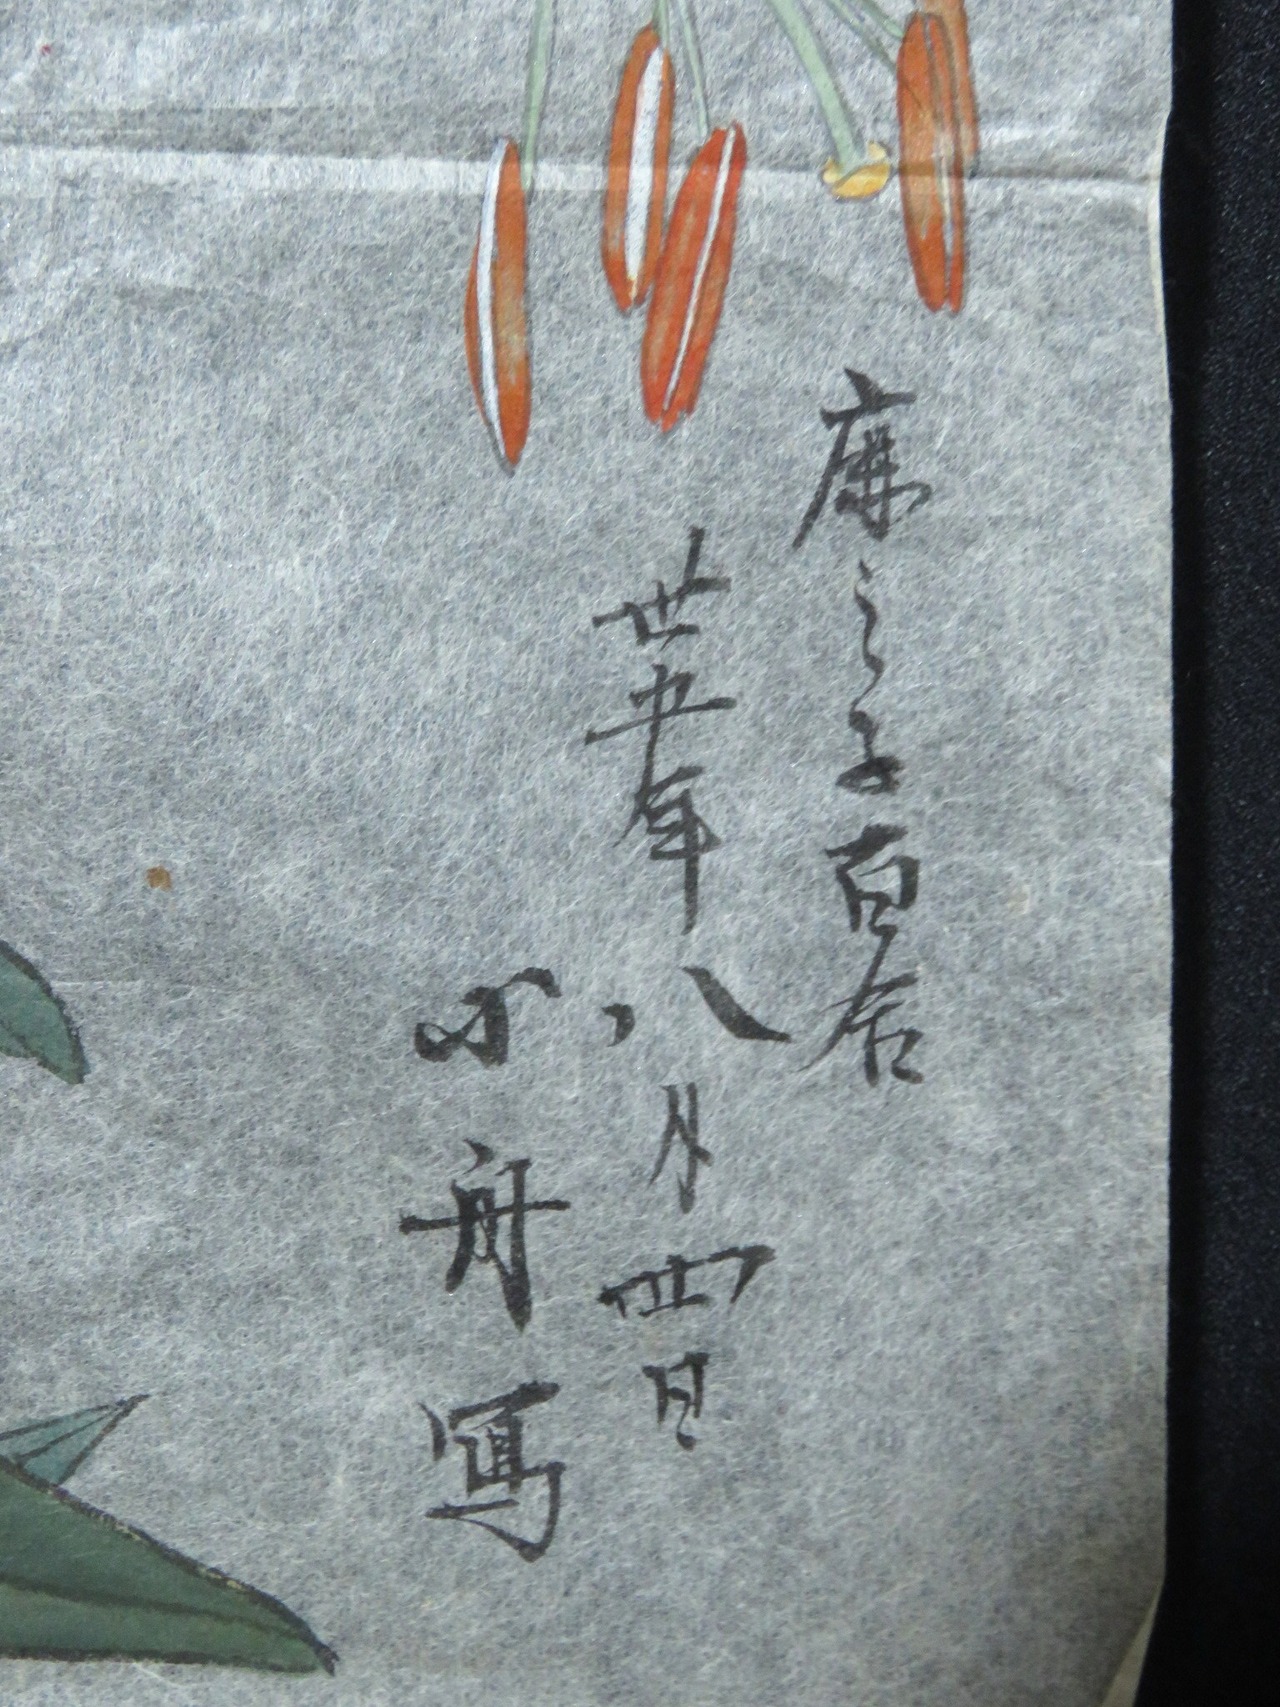 鹿之子百合
丗五年八月四日
小舟寫